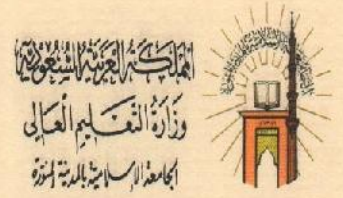 المملكة العربية السعودية
وزارة التعليم العالي
الجامعة الإسلامية بالمدينة المنورة